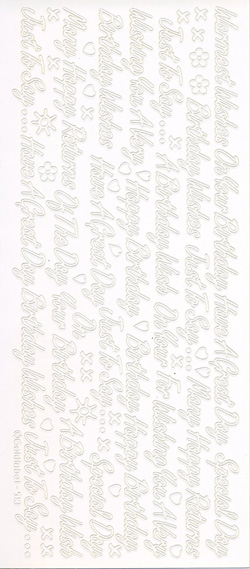 Warmest Wishes On Your Birthday Have A Great Day
Birthday Wishes Just To Say.... Many Happy Returns
Just To Say.... A Birthday Wish On Your Special Day
Wishing You A Very Happy Birthday For Wishing You A Very
Birthday Wishes Have A Great Day Just To Say.... Happy Birthday
Many Happy Returns Of The Day On Your Birthday Special Day
A Birthday Wish
Just To Say.... Have A Great Day Birthday Wishes Just To Say....